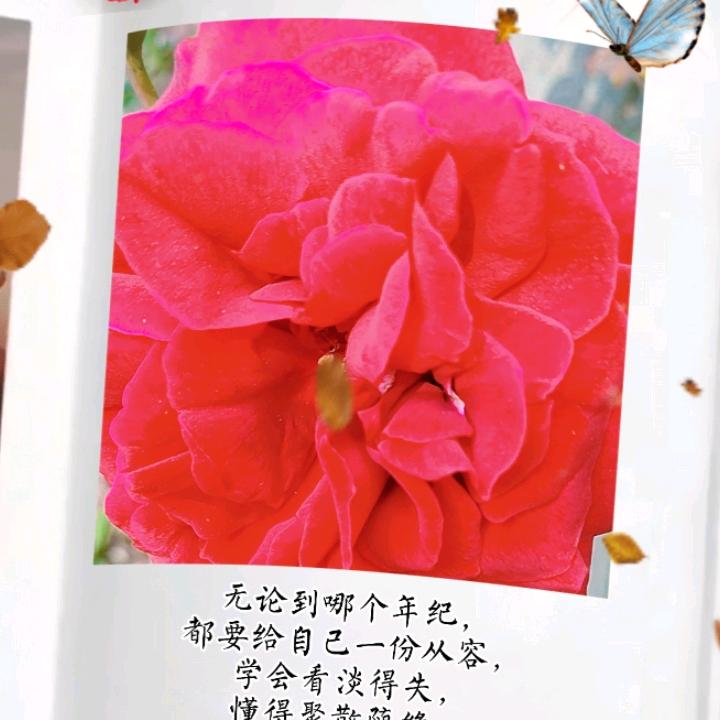 无论到哪个年纪，
都要给自己一份从容，
学会看淡得失，
懂得聚散随缘